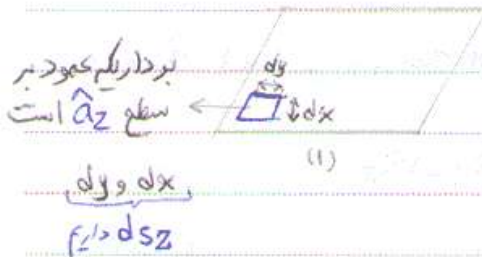 بردار یکه عمود بر
سطح âz است
dy
dx
(1)
dy و dx
dsz داریم